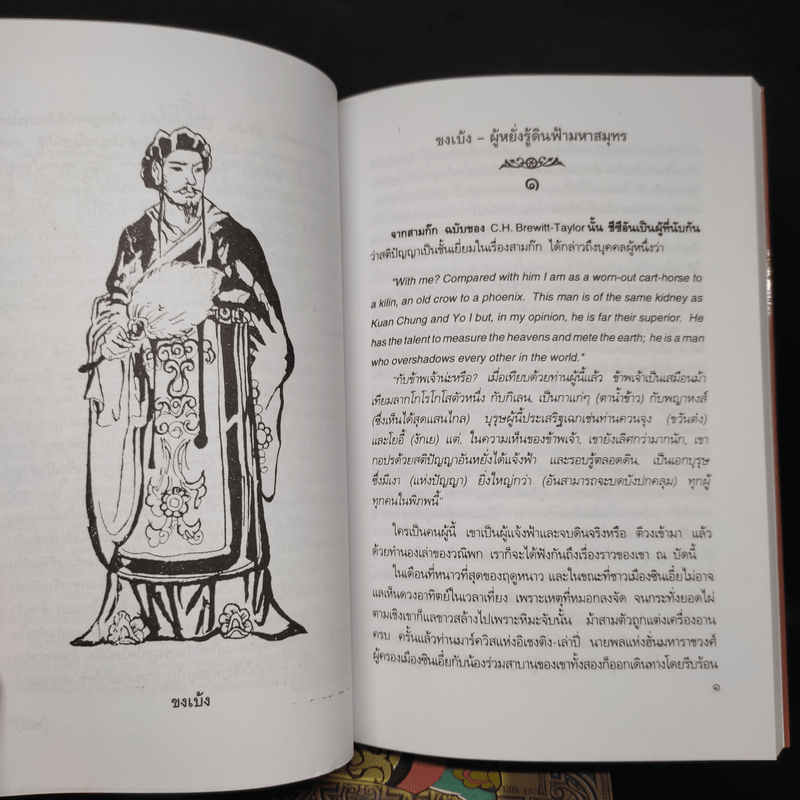 ขงเบ้ง
ขงเบ้ง – ผู้หยั่งรู้ดินฟ้ามหาสมุทร
๑
จากสามก๊ก ฉบับของ C.H. Brewitt-Taylor นั้น ชีซีอันเป็นผู้ที่นับกัน
ว่าสติปัญญาเป็นชั้นเยี่ยมในเรื่องสามก๊ก ได้กล่าวถึงบุคคลผู้หนึ่งว่า
"With me? Compared with him I am as a worn-out cart-horse to
a kilin, an old crow to a phoenix. This man is of the same kidney as
Kuan Chung and Yo I but, in my opinion, he is far their superior. He
has the talent to measure the heavens and mete the earth; he is a man
who overshadows every other in the world."
"กับข้าพเจ้าน่ะหรือ? เมื่อเทียบด้วยท่านผู้นี้แล้ว ข้าพเจ้าเป็นเสมือนม้า
เทียมลากโกโรโกโสตัวหนึ่ง กับกิเลน, เป็นกาแก่ๆ (ตาน้ำข้าว) กับพญาหงส์
(ซึ่งเห็นได้สุดแสนไกล) บุรุษผู้นี้ประเสริฐเฉกเช่นท่านควนจุง (ขวันต๋ง)
และโยอี้ (งักเย) แต่, ในความเห็นของข้าพเจ้า, เขายังเลิศกว่ามากนัก, เขา
กอปรด้วยสติปัญญาอันหยั่งได้แจ้งฟ้า และรอบรู้ตลอดดิน, เป็นเอกบุรุษ
ซึ่งมีเงา (แห่งปัญญา) ยิ่งใหญ่กว่า (อันสามารถจะบดบังปกคลุม) ทุกผู้
ทุกคนในพิภพนี้"
ใครเป็นคนผู้นี้ เขาเป็นผู้แจ้งฟ้าและจบดินจริงหรือ ตีวงเข้ามา แล้ว
ด้วยทำนองเล่าของวณิพก เราก็จะได้ฟังกันถึงเรื่องราวของเขา ณ บัดนี้
ในเดือนที่หนาวที่สุดของฤดูหนาว และในขณะที่ชาวเมืองซินเอี๋ยไม่อาจ
แลเห็นดวงอาทิตย์ในเวลาเที่ยง เพราะเหตุที่หมอกลงจัด จนกระทั่งยอดไผ่
ตามเชิงเขาก็แลขาวสล้างไปเพราะหิมะจับนั้น ม้าสามตัวถูกแต่งเครื่องอาน
ครบ ครั้นแล้วท่านมาร์ควิสแห่งอิเชงติง-เล่าปี่ นายพลแห่งฮั่นมหาราชวงศ์
ผู้ครองเมืองซินเอี๋ยกับน้องร่วมสาบานของเขาทั้งสองก็ออกเดินทางโดยรีบร้อน
๑